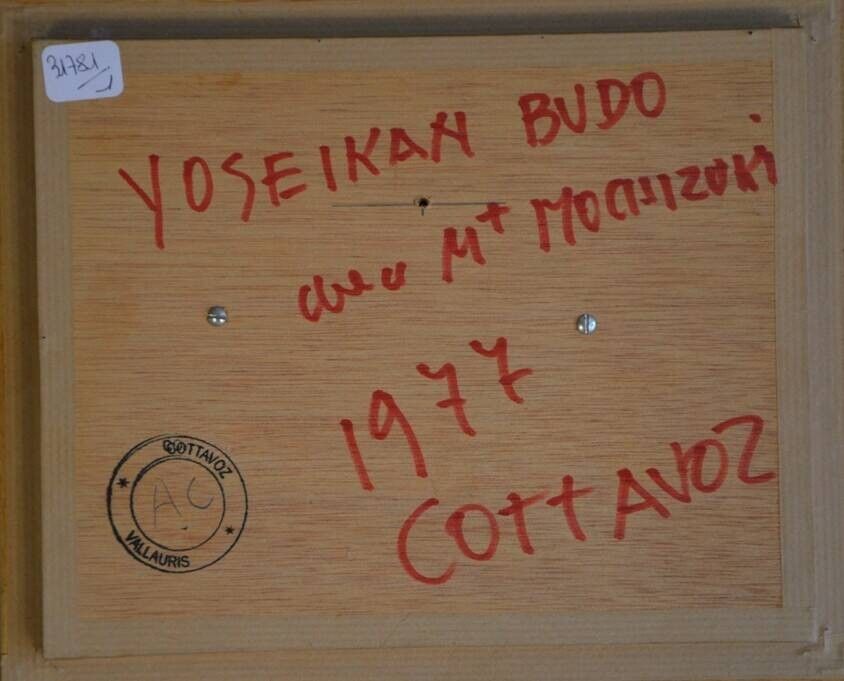 31781
YOSEIKAN BUDO
avec M+ MOCHIZUKI
1977
COTTAVOZ
COTTAVOZ
A.C
* VALLAURIS *